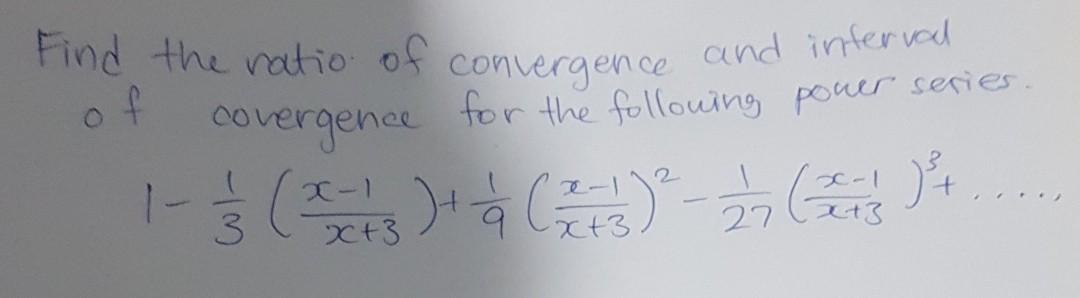 Find the ratio of convergence and interval
of covergence for the following power series.
1 - 1/3 (x-1/x+3) + 1/9 (x-1/x+3)² - 1/27 (x-1/x+3)³ + .....,